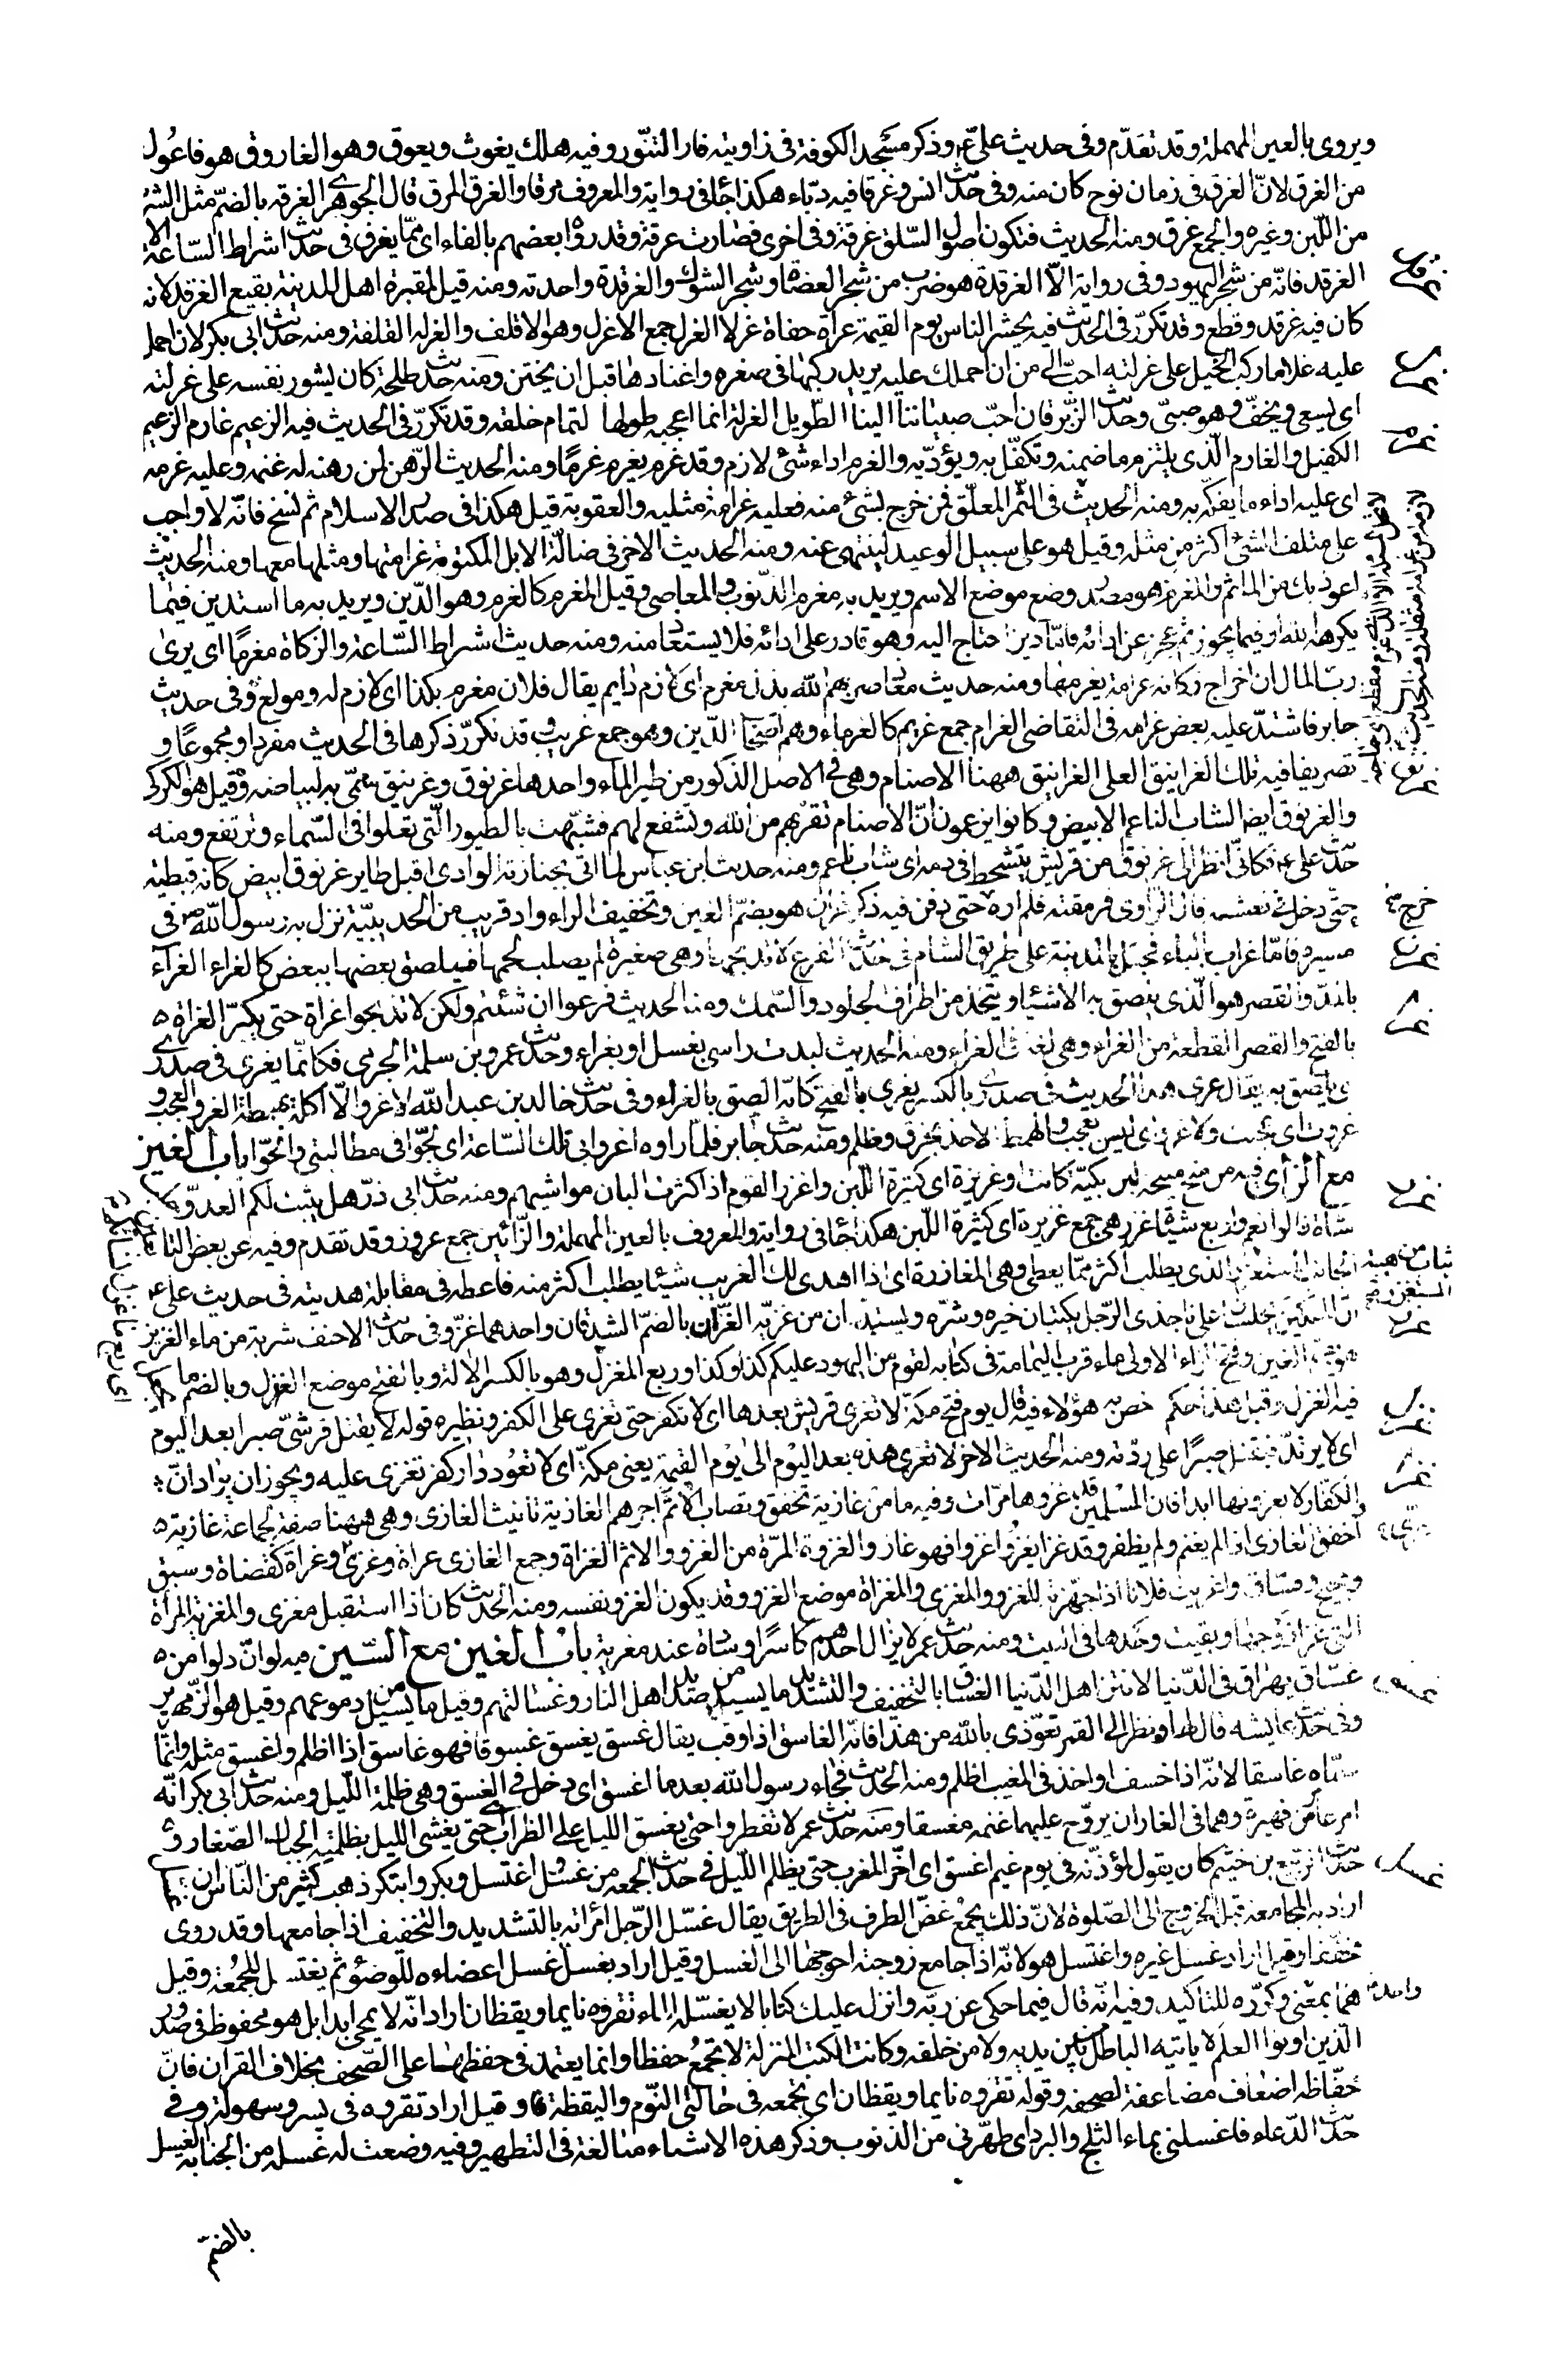 ويروى بالعين المهملة وقد تقدّم وفى حديث علىّ ع وذكر مسجد الكوفة فى زاويته فار التنّور وفيه هلك يغوث ويعوق وهو الغاروق هو فاعُول
من الغرق لانّ الغرق فى زمان نوح كان منه وفى حديث انس وغرقا فيه دبّاء هكذا جاء فى رواية والمعروف مرقا والغرق المرق قال الجوهرى الغرقه بالضمّ مثل الشربة
من اللّبن وغيره والجمع غرق ومنه الحديث فتكون اصول السّلق غرقة وفى اخرى فصارت عرقة وقد رواه بعضهم بالفاء اى ممّا يغرف فى حديث اشراط السّاعة الا
الغرقد فانّه من شجر اليهود وفى رواية الاّ الغرقدة هو ضرب من شجر العضاه وشجر الشوك والغرقدة واحدته ومنه قيل لمقبرة اهل المدينة بقيع الغرقد لانه
كان فيه غرقد وقطع وقد تكرّر فى الحديث فيه يحشر الناس يوم القيمة عراة حفاة غرلا الغرل جمع الاغرل وهو الاقلف والغرله القلفة ومنه حديث ابى بكر لان احمل
عليه غلاما ركب الخيل على غرلته احبّ الى من ان احملك عليه يريد ركبها فى صغره واعتادها قبل ان يختتن ومنه حديث طلحة كان يشور نفسه على غرلته
اى يسعى ويخفّ وهو صبىّ وحديث الزّبرقان احبّ صبياننا الينا الطّويل الغرلة انما اعجبه طولها لتمام خلقه وقد تكرّر فى الحديث فيه الزعيم غارم الزعيم
الكفيل والغارم الّذى يلتزم ما ضمنه وتكفّل به ويؤدّيه والغرم اداء شئ لازم وقد غرم يغرم غرمًا ومنه الحديث الرّهن لمن رهنه له غنمه وعليه غرمه
اى عليه اداء ما يفكّه به ومنه الحديث فى الثّمر المعلّق فمن خرج بشئ منه فعليه غرامة مثليه والعقوبة قيل هكذا فى صدر الاسلام ثم نسخ فانّه لا واجب
على متلف الشئ اكثر من مثله وقيل هو على سبيل الوعيد لينتهى عنه ومنه الحديث الاخر فى ضالّة الابل المكتومة غرامتها ومثلها معها ومنه الحديث
اعوذ بك من الماثم والمغرم هو مصدر وضع موضع الاسم ويريد به مغرم الذّنوب والمعاصى وقيل المغرم كالغرم وهو الدّين ويريد به ما استدين فيما
يكرهه الله او فيما يجوز ثم عجز عن ادائه فامّا دين احتاج اليه وهو قادر على ادائه فلا يستعاذ منه ومنه حديث اشراط السّاعة والزكاة مغرمًا اى يرى
ربّ المال ان اخراج زكاته غرامة يغرمها ومنه حديث معاذ ضربهم الله بذلّ مغرم اى لازم دايم يقال فلان مغرم بكذا اى لازم له ومولع به وفى حديث
جابر فاشتدّ عليه بعض غرامه فى التقاضى الغرام جمع غريم كالغرماء وهم اصحاب الدّين وهو جمع غريب وقد تكرّر ذكرها فى الحديث مفردا ومجموعًا و
تصريفا فيه تلك الغرانيق العلى الغرانيق ههنا الاصنام وهى فى الاصل الذكور من طير الماء واحدها غرنوق وغرنيق سمّى به لبياضه وقيل هو الكركى
والغرنوق ايضا الشاب الناعم الابيض وكانوا يزعمون انّ الاصنام تقرّبهم من الله وتشفع لهم فشبّهت بالطيور الّتى تعلوا فى السّماء وترتفع ومنه
حديث على ع فكانّى انظر الى غرنوق من قريش يتشحط فى دمه اى شاب ناعم ومنه حديث ابن عباس لما اتى بجنازته الوادى اقبل طاير غرنوق ابيض كانه قبطية
حتّى دخل فى نعشه قال الرّاوى فرمقته فلم اره حتى دفن فيه ذكر غران هو بضمّ الغين وتخفيف الراء واد قريب من الحديبيّة نزل به رسول الله ص فى
مسيره فامّا غراب بالباء فجبل بالمدينة على طريق الشام فى حديث الفرع لا تذبحها وهى صغيرة لم يصلب لحمها فيلصق بعضها ببعض كالغراء الغراء
بالمدّ والقصر هو الّذى يلصق به الاشياء ويتّخذ من اطراف الجلود والسّمك ومنه الحديث فرعوا ان شئتم ولكن لا تذبحوا غراة حتى يكبر الغراة
بالفتح والقصر القطعة من الغراء وهى لغة فى الغراء ومنه الحديث لبدت راسى بغسل او بغراء وحديث عمرو بن سلمة الجرمى فكانّما يغرى فى صدرى
اى يلصق به يقال غرى هذا الحديث فى صدرى بالكسر يغرى بالفتح كانّه الصق بالغراء وفى حديث خالد بن عبد الله لا غرو الاّ اكلة بهمطة الغرو العجب و
غروت اى عجبت ولا غرو اى ليس بعجب والهمط الاخذ بخرق وظلم ومنه حديث جابر فلمّا راوه اغروا بى تلك السّاعة اى لجّوا فى مطالبتى والحّوا باب الغين
مع الزاى فيه من منح منيحة لبن بكيّة كانت او غزيرة اى كثيرة اللّبن واغزر القوم اذا كثرت البان مواشيهم ومنه حديث ابى ذرّ هل يثبت لكم العدوّ حلب
شاة قالوا نعم واربع شياه غزر هى جمع غزيرة اى كثيرة اللّبن هكذا جاء فى رواية والمعروف بالعين المهملة والزّائين جمع عزوز وقد تقدم وفيه عن بعض التابعين
الجانب المستغزر الذى يطلب اكثر ممّا يعطى وهى المغازرة اى اذا اهدى لك الغريب شيئا يطلب اكثر منه فاعطه فى مقابلة هديته فى حديث على ع
انّ الملكين يجلسان على ناجذى الرّجل يكتبان خيره وشرّه ويستمدّان من غزّيه الغزّان بالضمّ الشدقان واحدهما غزّ وفى حديث الاحنف شربة من ماء الغزيز
هو بضمّ الغين وفتح الزاء الاولى ماء قرب اليمامة فى كتابه لقوم من اليهود عليكم كذا وكذا وربع المغزل وهو بالكسر الالة وبالفتح موضع الغزل وبالضم ما يجعل
فيه الغزل وقيل هذا حكم خصّ به هؤلاء فيه قال يوم فتح مكّة لا تغزى قريش بعدها اى لا تكفر حتى تغزى على الكفر ونظيره قوله لا يقتل قرشىّ صبرا بعد اليوم
اى لا يرتدّ فيقتل صبرًا على ردّته ومنه الحديث الاخر لا تغزى هذه بعد اليوم الى يوم القيمة يعنى مكّة اى لا تعود دار كفر تغزى عليه ويجوز ان يراد انّ
الكفّار لا يغزونها ابدا فان المسلمين قد غزوها مرّات وفيه ما من غازية تخفق وتصاب الاّ تمّ اجرهم الغازية تانيث الغازى وهى ههنا صفة لجماعة غازية
واخفق الغازى اذا لم يغنم ولم يظفر وقد غزا يغزو غزوا فهو غاز والغزوة المرّة من الغزو والاسم الغزاة وجمع الغازى غزاة وغزىّ وغزاة كقضاة وسبق
وحجيج وفسّاق واغزيت فلانا اذا جهّزته للغزو والمغزى والمغزاة موضع الغزو وقد يكون الغزو نفسه ومنه الحديث كان اذا استقبل مغزى والمغزية المراة
التى غزا زوجها وبقيت وحدها فى البيت ومنه حديث عمر لا يزال احدهم كاسرًا وسادة عند مغزية باب الغين مع السّين فيه لو انّ دلوا من
غسّاق يهراق فى الدّنيا لانتن اهل الدّنيا الغساق بالتخفيف والتشديد ما يسيل من صديد اهل النار وغسالتهم وقيل ما يسيل من دموعهم وقيل هو الزّمهرير
وفى حديث عايشه قال لها ونظر الى القمر تعوّذى بالله من هذا فانّه الغاسق اذا وقب يقال غسق يغسق غسوقا فهو غاسق اذا اظلم واغسق مثله وانّما
سمّاه غاسقا لانّه اذا خسف او اخذ فى المغيب اظلم ومنه الحديث فجاء رسول الله بعد ما اغسق اى دخل فى الغسق وهى ظلمة اللّيل ومنه حديث ابى بكر انّه
امر عامر بن فهيرة وهما فى الغار ان يروّح عليهما غنمه مغسقا ومنه حديث عمر لا تفطروا حتى يغسق الليل على الظراب اى حتى يغشى الليل بظلمته الجبال الصّغار و
حديث الربيع بن خثيم كان يقول لمؤذّنه فى يوم غيم اغسق اى اخّر المغرب حتى يظلم اللّيل فى حديث الجمعه من غسّل واغتسل وبكر وابتكر ذهب كثير من النّاس ان
اراد به المجامعة قبل الخروج الى الصّلوة لانّ ذلك يجمع غضّ الطرف فى الطريق يقال غسّل الرّجل امراته بالتشديد والتخفيف اذا جامعها وقد روى
مخفّفا وقيل اراد غسل غيره واغتسل هو لانّه اذا جامع زوجته احوجها الى الغسل وقيل اراد بغسل غسل اعضاءه للوضوء ثم يغتسل للجمعة وقيل
هما بمعنى وكرّره للتاكيد وفيه انّه قال فيما حكى عن ربّه وانزل عليك كتابا لا يغسله الماء تقروه نايما ويقظان اراد انّه لا يمحى ابدا بل هو محفوظ فى صدور
الّذين اوتوا العلم لا ياتيه الباطل من بين يديه ولا من خلفه وكانت الكتب المنزلة لا تجمع حفظا وانما يعتمد فى حفظها على الصّحف بخلاف القران فانّ
حفّاظه اضعاف مضاعفة لصحفه وقوله تقروه نايما ويقظان اى تجمعه فى حالتى النّوم واليقظة وقيل اراد تقروه فى يسر وسهولة وفى
حديث الدّعاء فاغسلنى بماء الثلج والبرد اى طهّرنى من الذنوب وذكر هذه الاشياء مبالغة فى التطهير وفيه وضعت له غسله من الجنابة الغسل
بالضّم